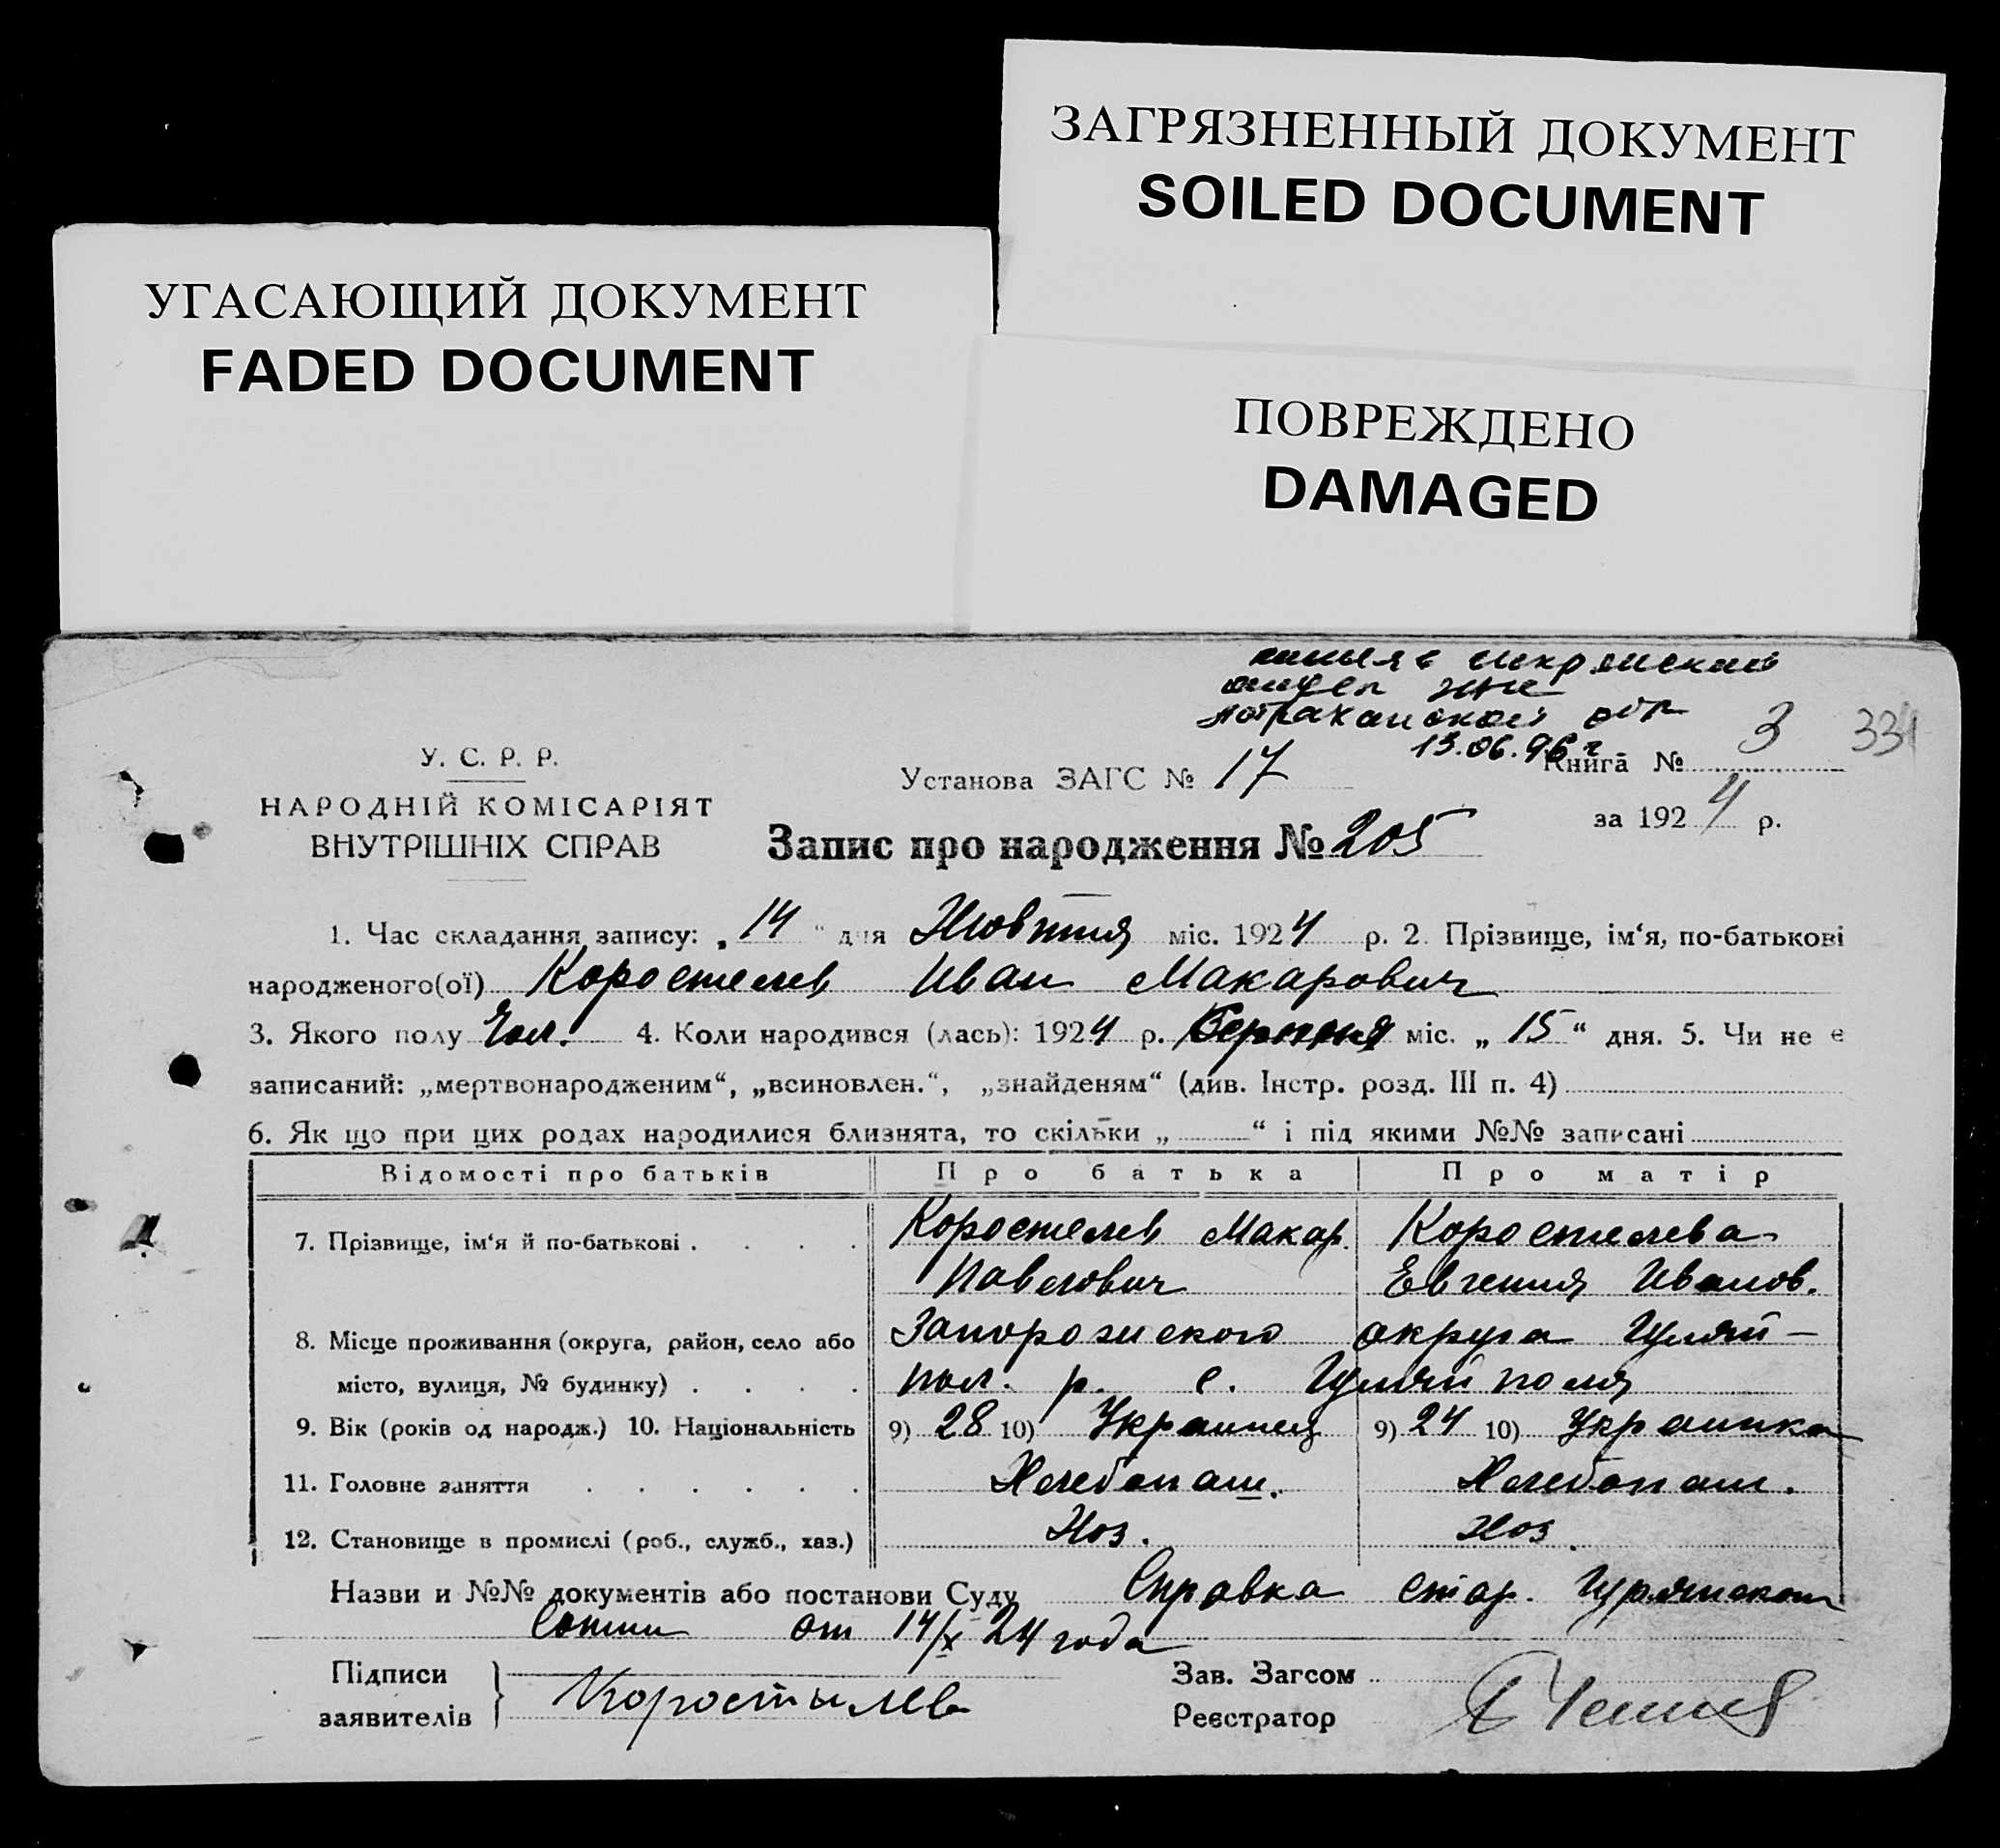 ЗАГРЯЗНЕННЫЙ ДОКУМЕНТ
SOILED DOCUMENT
УГАСАЮЩИЙ ДОКУМЕНТ
FADED DOCUMENT
ПОВРЕЖДЕНО
DAMAGED
Астраханской обл
13.06.96 г
У. С. Р. Р.
НАРОДНІЙ КОМІСАРІЯТ
ВНУТРІШНІХ СПРАВ
Установа ЗАГС № 17
Книга № 3 331
за 1924 р.
Запис про народження № 205
1. Час складання запису: „14“ дня Жовтня міс. 1924 р. 2. Прізвище, ім‘я, по-батькові
народженого(ої) Коростелев Иван Макарович
3. Якого полу Чол. 4. Коли народився (лась): 1924 р. Серпня міс. „15“ дня. 5. Чи не є
записаний: „мертвонародженим“, „всиновлен.“, „знайденям“ (див. Інстр. розд. III п. 4)
6. Як що при цих родах народилися близнята, то скільки „ “ і під якими №№ записані
Відомості про батьків Про батька Про матір
7. Прізвище, ім‘я й по-батькові . . . . Коростелев Макар. Коростелева
Павлович Евгения Иванов.
8. Місце проживання (округа, район, село або Запорожского округа Гуляй-
місто, вулиця, № будинку) . . . . пол. р. с. Гуляй поля
9. Вік (років од народж.) 10. Національність 9) 28 10) Украинец 9) 24 10) Украинка
11. Головне заняття . . . . . . Хлебопаш. Хлебопаш.
12. Становище в промислі (роб., служб., хаз.) Хоз. Хоз.
Назви и №№ документів або постанови Суду Справка стар.
Сотни от 14/X 24 года
Підписи
заявителів
Коростылев
Зав. Загсом
Реєстратор